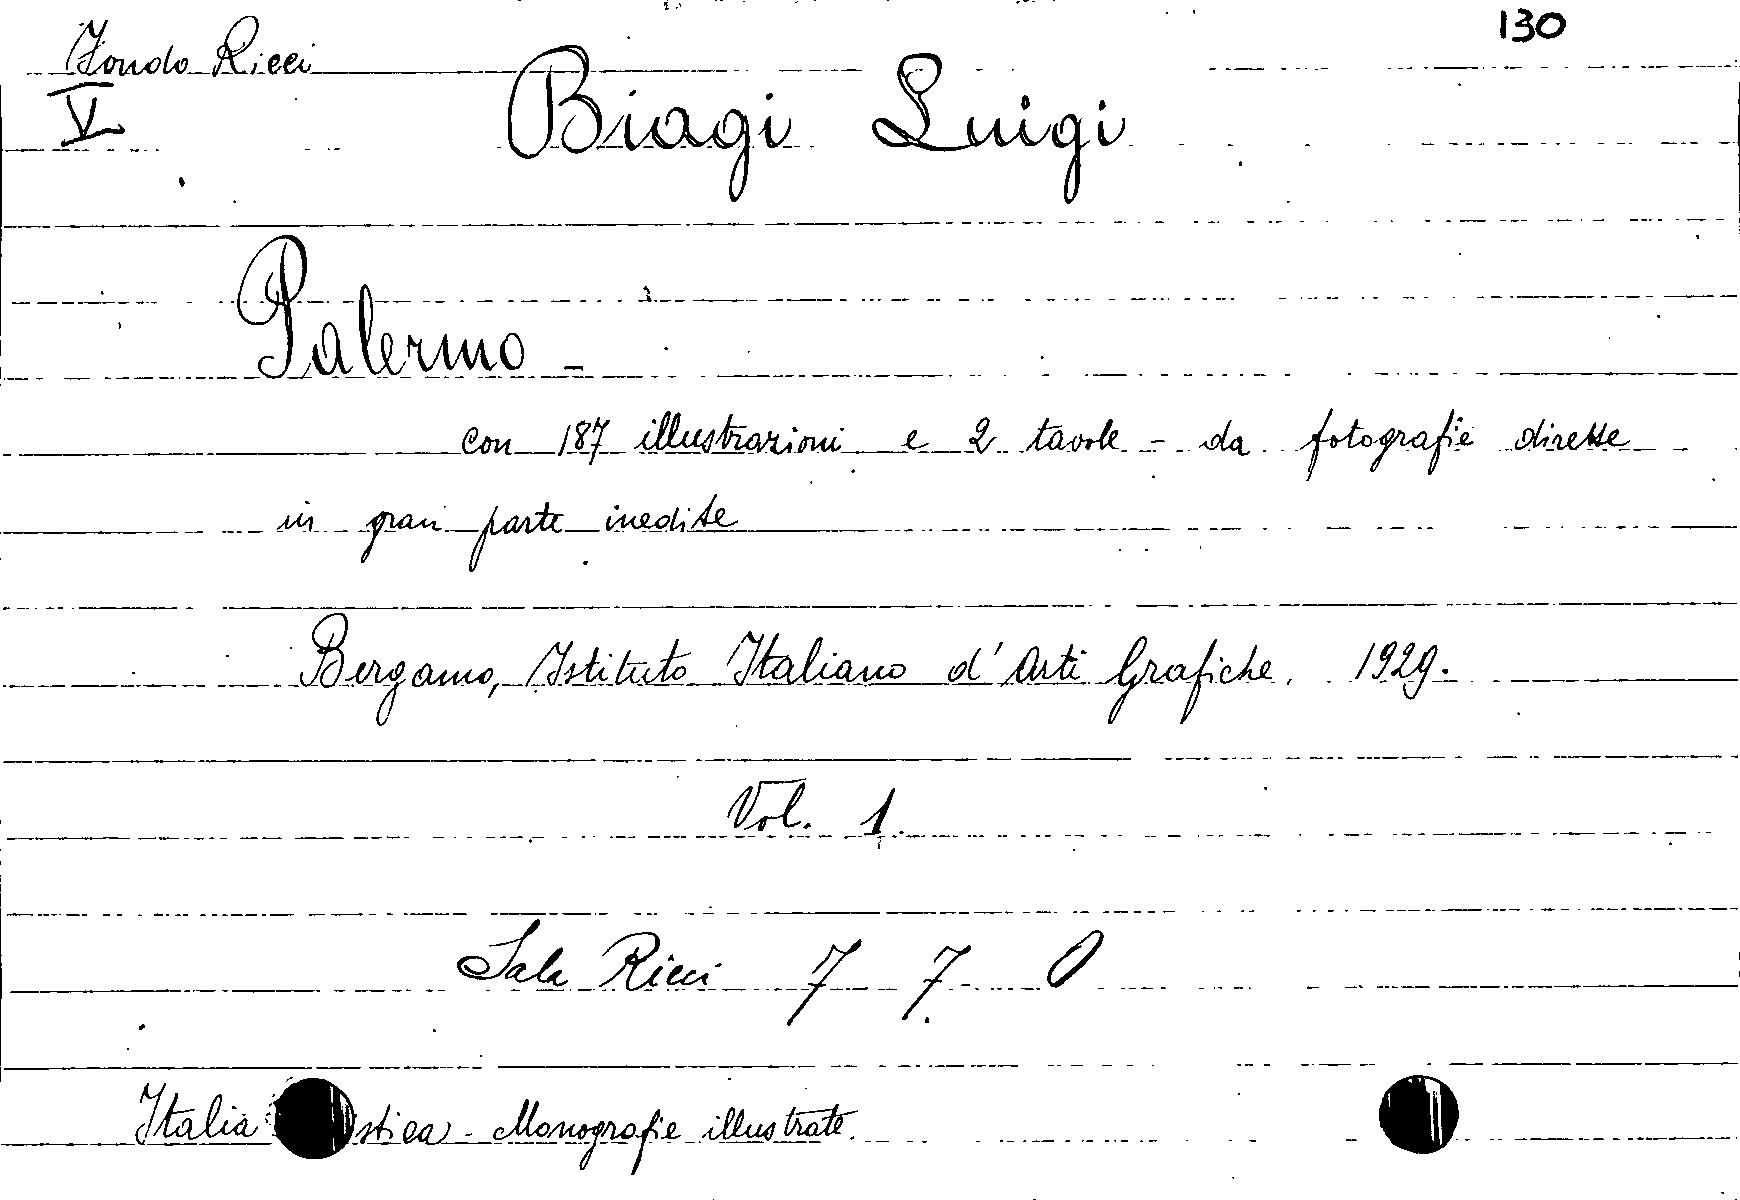 130
Fondo Ricci
V
Biagi Luigi
Palermo -
con 187 illustrazioni e 2 tavole - da fotografie dirette
in gran parte inedite
Bergamo, Istituto Italiano d'Arti Grafiche. 1929.
Vol. 1.
Sala Ricci 7 7. 0
Italia stica - Monografie illustrate.